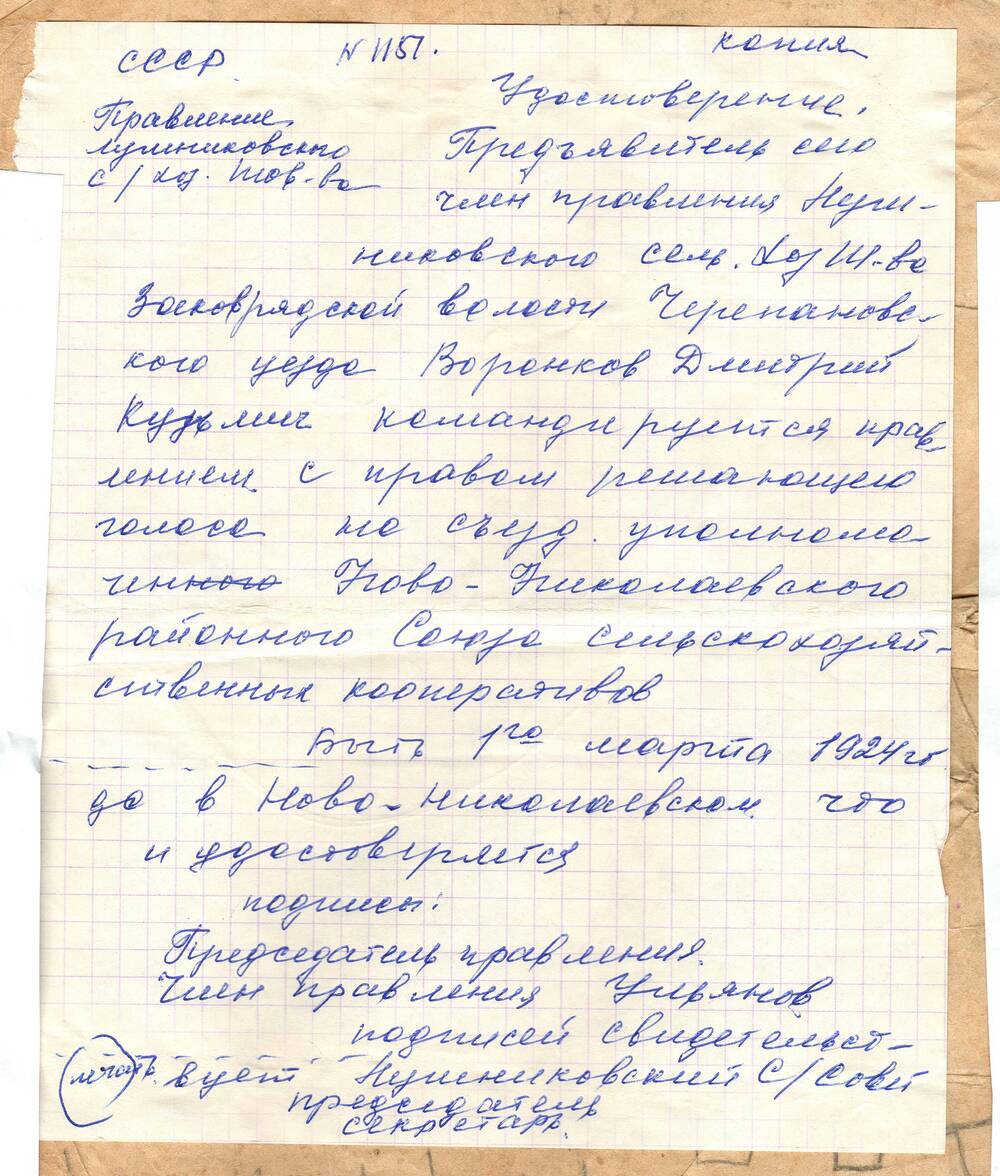 СССР. № 1151. копия
Удостоверение.
Правление
лушниковского
с/хоз. тов-ва
Предъявитель сего
член правления Луш-
никовского сель. хоз Т-ва
волости Черепановс-
кого уезда Воронков Дмитрий
Кузьмич командируется прав-
лением с правом решающего
голоса на съезд. уполномо-
ченного Ново-Николаевского
районного Союза сельскохозяй-
ственных кооперативов
Быть 1го марта 1924 го
да в Ново-Николаевском что
и удостоверяется
подписи:
Председатель правления.
Член правления Ульянов
подписей свидетельст-
(печать) вует Лушниковский С/Совет
председатель
секретарь.